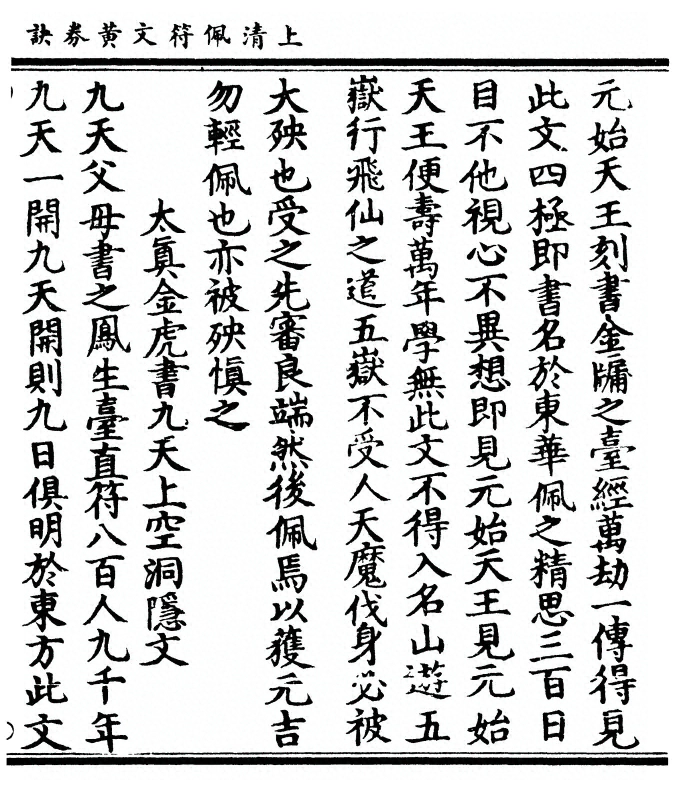 上清佩符文黃券訣
元始天王刻書金牖之臺經萬劫一傳得見
此文四極即書名於東華佩之精思三百日
目不他視心不異想即見元始天王見元始
天王便壽萬年學無此文不得入名山遊五
嶽行飛仙之道五嶽不受人天魔伐身必被
大殃也受之先審良端然後佩焉以獲元吉
勿輕佩也亦被殃慎之
太真金虎書九天上空洞隱文
九天父母書之鳳生臺直符八百人九千年
九天一開九天開則九日俱明於東方此文